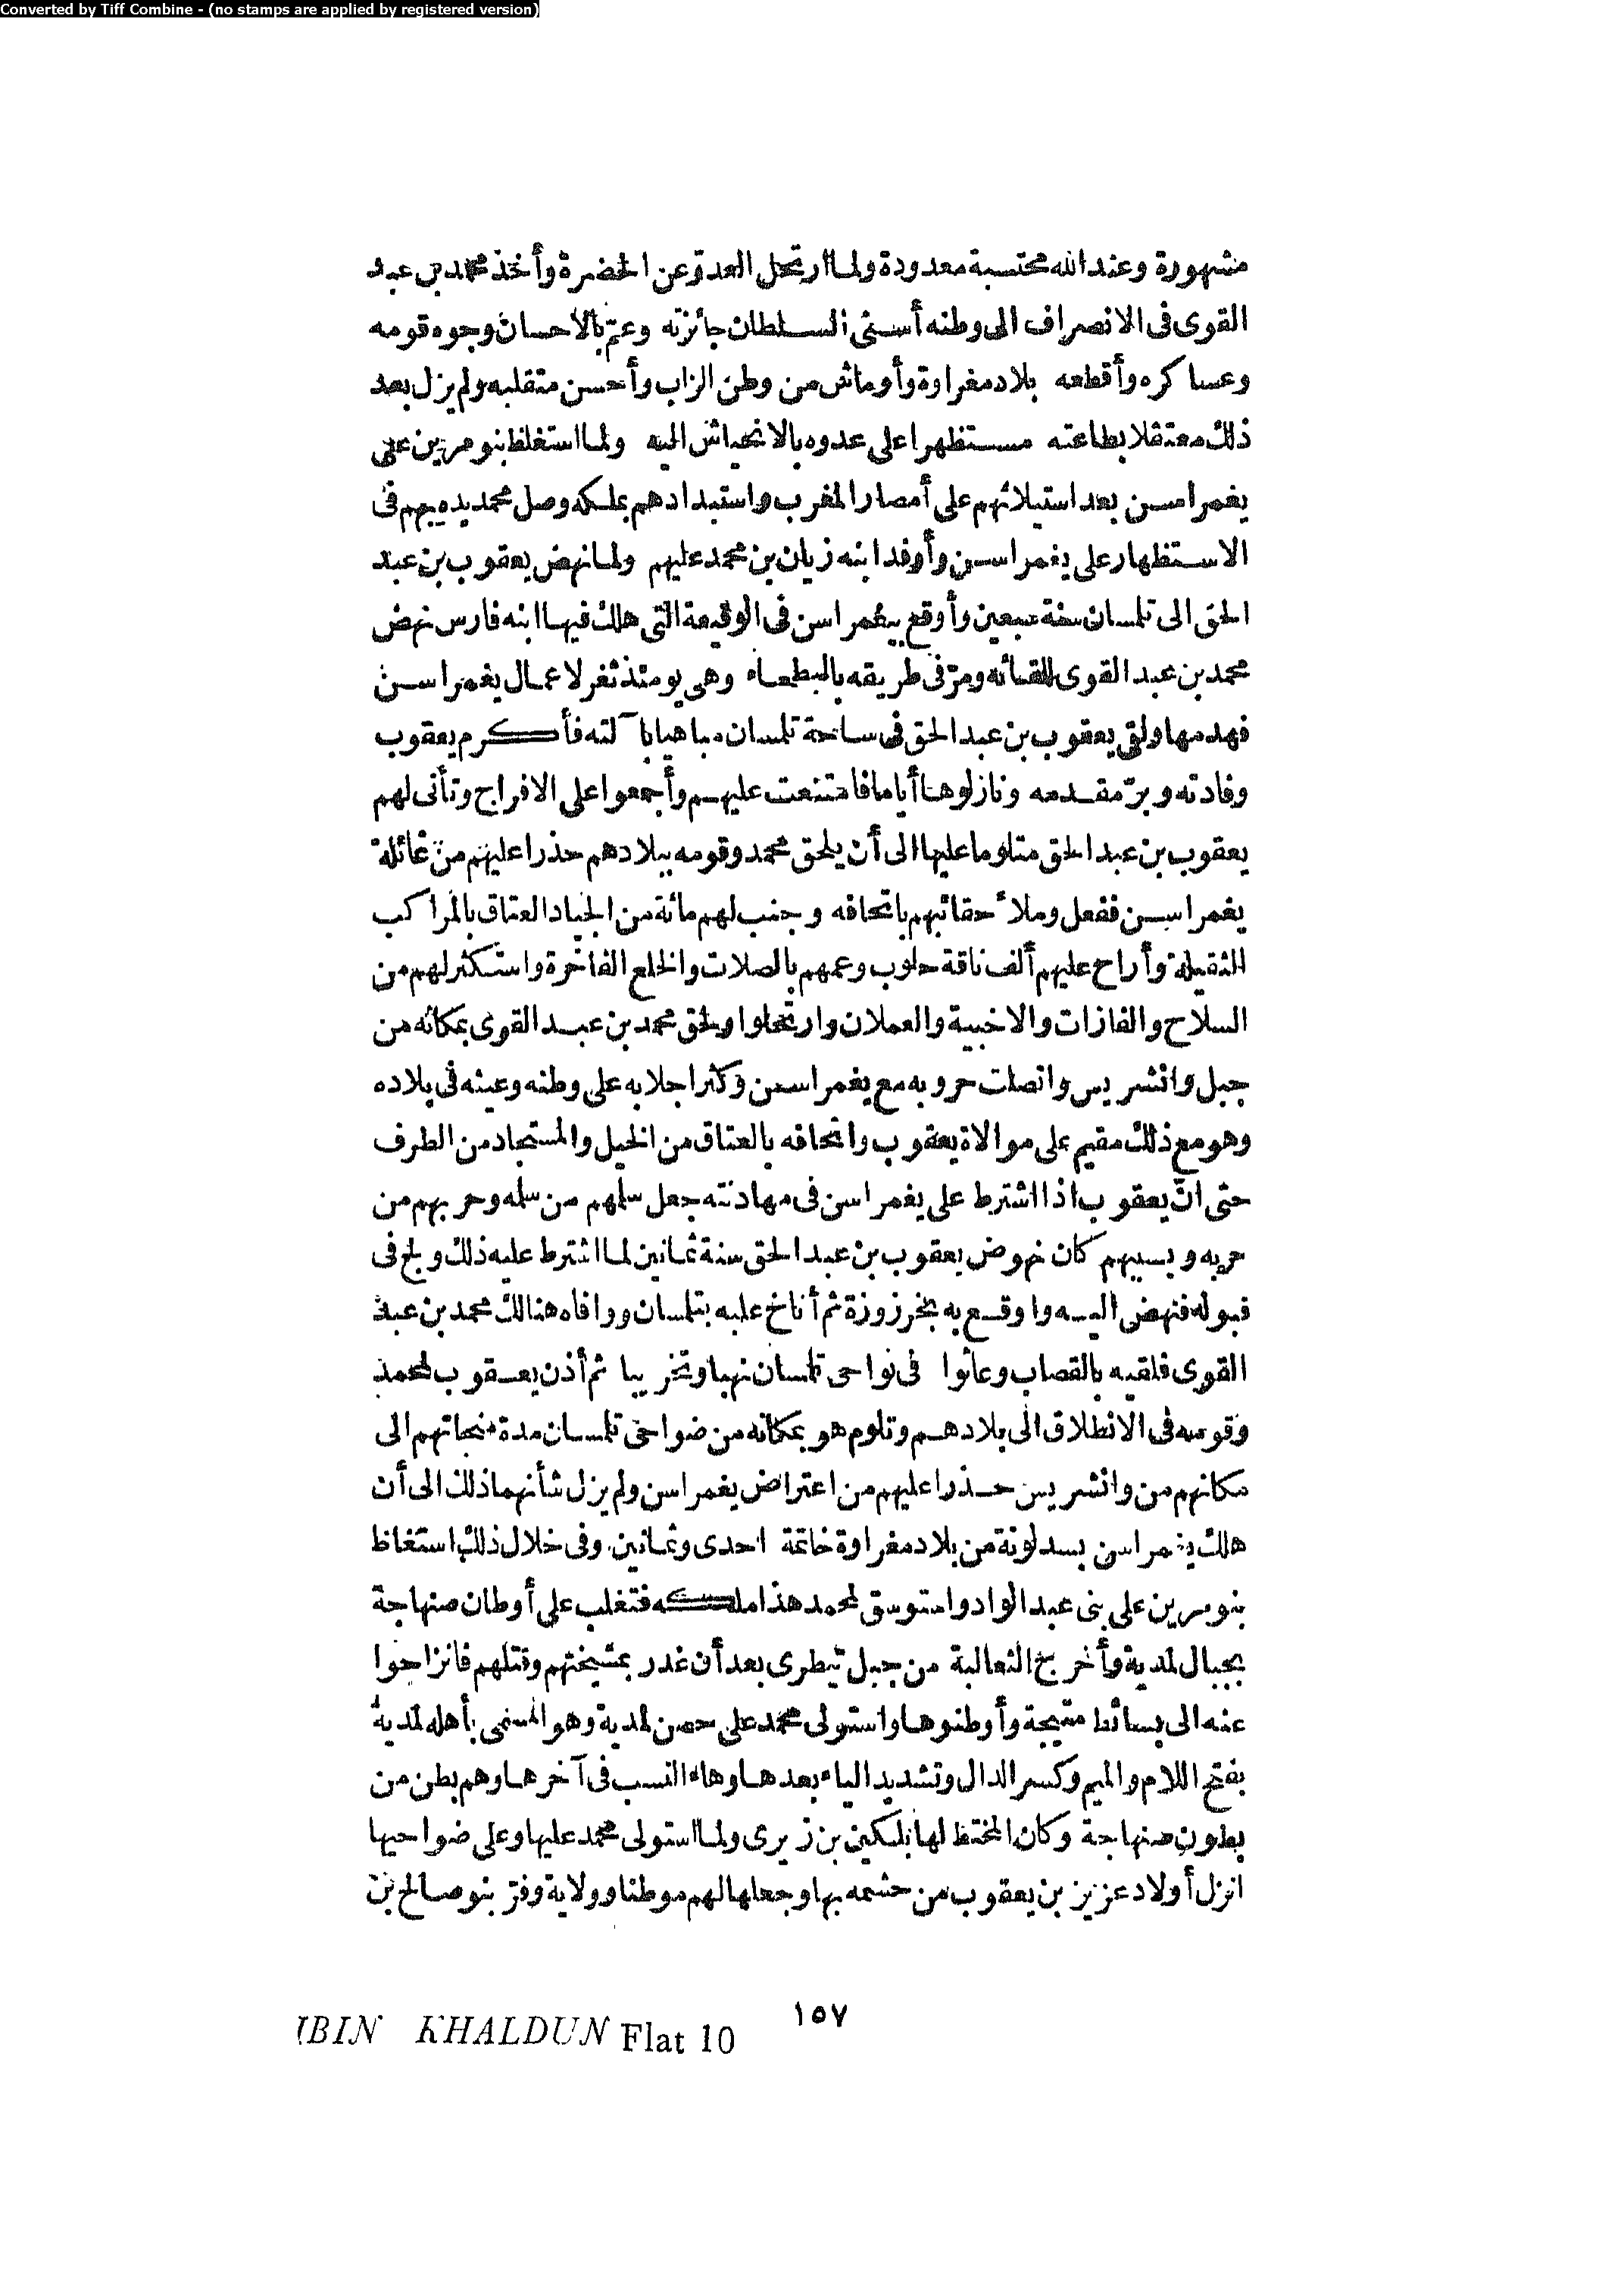 Converted by Tiff Combine - (no stamps are applied by registered version)
مشهورة وعند الله محتسبة معدودة ولما ارتحل العدوّ عن الحضرة وأخذ محمد بن عبد
القوى فى الانصراف الى وطنه أسنى السلطان جائزته وعمّ بالاحسان وجوه قومه
وعساكره وأقطعه بلاد مغراوة وأوماش من وطن الزاب وأحسن منقلبه ولم يزل بعد
ذلك معتقلا بطاعته مستظهرا على عدوه بالانحياش اليه ولما استغلظ بنو مرين على
يغمراسن بعد استيلائهم على أمصار المغرب واستبدادهم بملكه وصل محمد يده بهم فى
الاستظهار على يغمراسن وأوفد ابنه زيان بن محمد عليهم ولما نهض يعقوب بن عبد
الحق الى تلمسان سنة سبعين وأوقع بيغمراسن فى الوقيعة التى هلك فيها ابنه فارس نهض
محمد بن عبد القوى للقائه ومرّ فى طريقه بالبطحاء وهى يومئذ ثغر لاعمال يغمراسن
فهدمها ولقى يعقوب بن عبد الحق فى ساحة تلمسان مباهيا بآلته فأكرم يعقوب
وفادته وبرّ مقدمه ونازلوها أياما فامتنعت عليهم وأجمعوا على الافراج وتأنى لهم
يعقوب بن عبد الحق متلوما عليها الى أن يلحق محمد وقومه ببلادهم حذرا عليهم من غائلة
يغمراسن ففعل وملأ حقائبهم باتحافه وجنب لهم مائة من الجياد العتاق بالمراكب
الثقيلة وأراح عليهم ألف ناقة حلوب وعمهم بالصلات والخلع الفاخرة واستكثر لهم من
السلاح والفازات والاخبية والحملان وارتحلوا ولحق محمد بن عبد القوى بمكانه من
جبل وانشريس واتصلت حروبه مع يغمراسن وكثر اجلابه على وطنه وعيثه فى بلاده
وهو مع ذلك مقيم على موالاة يعقوب واتحافه بالعتاق من الخيل والمستجاد من الطرف
حتى انّ يعقوب اذا اشترط على يغمراسن فى مهادنته جعل سلمهم من سلمه وحربهم من
حربه وبسببهم كان نهوض يعقوب بن عبد الحق سنة ثمانين لما اشترط عليه ذلك ولج فى
قبوله فنهض اليه وأوقع به بخرزوزة ثم أناخ عليه بتلمسان ووافاه هنالك محمد بن عبد
القوى فلقيه بالقصاب وعاثوا فى نواحى تلمسان نهبا وتخريبا ثم أذن يعقوب لمحمد
وقومه فى الانطلاق الى بلادهم وتلوم هو بمكانه من ضواحى تلمسان مدة منجاتهم الى
مكانهم من وانشريس حذرا عليهم من اعتراض يغمراسن ولم يزل شأنهما ذلك الى أن
هلك يغمراسن بسدلونة من بلاد مغراوة خاتمة احدى وثمانين وفى خلال ذلك استغلظ
بنو مرين على بنى عبد الواد واستوسق لمحمد هذا ملكه فتغلب على أوطان صنهاجة
بجبال لمدية وأخرج الثعالبة من جبل تيطرى بعد أن غدر بمشيختهم وقتلهم فانزاحوا
عنه الى بسائط متيجة وأوطنوها واستولى محمد على حصن لمدية وهو المسمى بأهله لمدية
بفتح اللام والميم وكسر الدال وتشديد الياء بعدها وهاء النسب فى آخرها وهم بطن من
بطون صنهاجة وكان المختط لها بلكين بن زيرى ولما استولى محمد عليها وعلى ضواحيها
انزل أولاد عزيز بن يعقوب من حشمه بها وجعلها لهم موطنا وولاية وفرّ بنو صالح بن
١٥٧
IBIN KHALDUN Flat 10